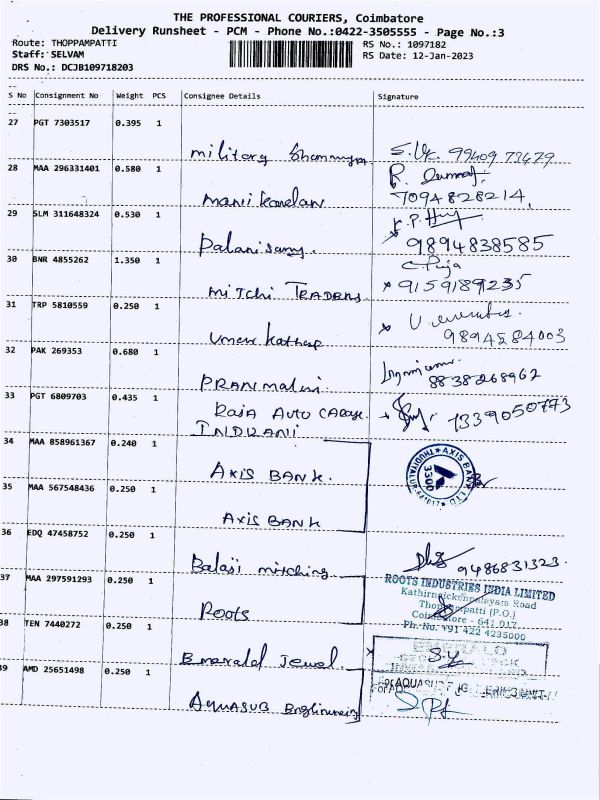 THE PROFESSIONAL COURIERS, Coimbatore
Delivery Runsheet - PCM - Phone No.:0422-3505555 - Page No.:3
Route: THOPPAMPATTI
Staff: SELVAM
DRS No.: DCJB109718203
RS No.: 1097182
RS Date: 12-Jan-2023
S No Consignment No Weight PCS Consignee Details Signature
27 PGT 7303517 0.395 1
military
28 MAA 296331401 0.580 1
manikandan 7094828214,
29 SLM 311648324 0.530 1
Palanisamy. 9894838585
30 BNR 4855262 1.350 1
MITCHI TRADERS 9159189235
31 TRP 5810559 0.250 1
9894584003
32 PAK 269353 0.680 1
PRANMALINI 8838268962
33 PGT 6809703 0.435 1
Raja Auto 7339050773
INDRANI
34 MAA 858961367 0.240 1
AXIS BANK.
AXIS BANK LTD
THUDIYALUR
3300
35 MAA 567548436 0.250 1
AXIS BANK
36 EDQ 47458752 0.250 1
Balaji 9486831323.
37 MAA 297591293 0.250 1
Roots
ROOTS INDUSTRIES INDIA LIMITED
Kathirnaickenpalayam Road
Thoppampatti (P.O.)
Coimbatore - 641 017.
Ph. No. +91 422 4235000
38 TEN 7440272 0.250 1
Emerald Jewel
EMERALD
39 AMD 25651498 0.250 1
AQUASUB Engineering
For AQUASUB